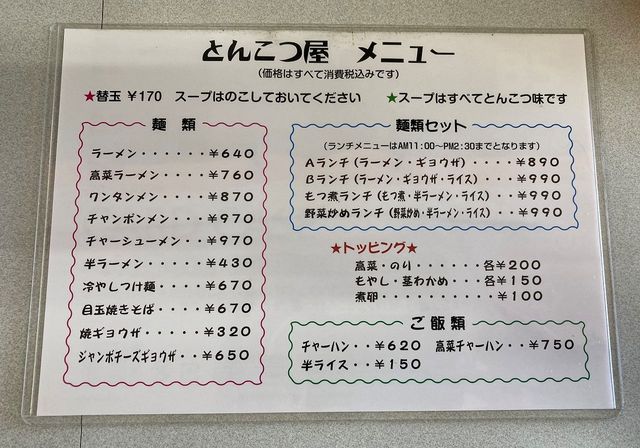 とんこつ屋 メニュー
(価格はすべて消費税込みです)
★替玉 ¥170 スープはのこしておいてください ★スープはすべてとんこつ味です
麺 類
ラーメン・・・・・・¥640
高菜ラーメン・・・・¥760
ワンタンメン・・・・¥870
チャンポンメン・・・¥970
チャーシューメン・・¥970
半ラーメン・・・・・¥430
冷やしつけ麺・・・・¥670
目玉焼きそば・・・・¥670
焼ギョウザ・・・・・¥320
ジャンボチーズギョウザ・・¥650
麺類セット
(ランチメニューはAM11:00～PM2:30までとなります)
Aランチ(ラーメン・ギョウザ)・・・・¥890
Bランチ(ラーメン・ギョウザ・ライス)・・¥990
もつ煮ランチ(もつ煮・半ラーメン・ライス)・・¥990
野菜炒めランチ(野菜炒め・半ラーメン・ライス)・・¥990
★トッピング★
高菜・のり・・・・・・・各¥200
もやし・茎わかめ・・・各¥150
煮卵・・・・・・・・・・¥100
ご飯類
チャーハン・・¥620 高菜チャーハン・・¥750
半ライス・・¥150